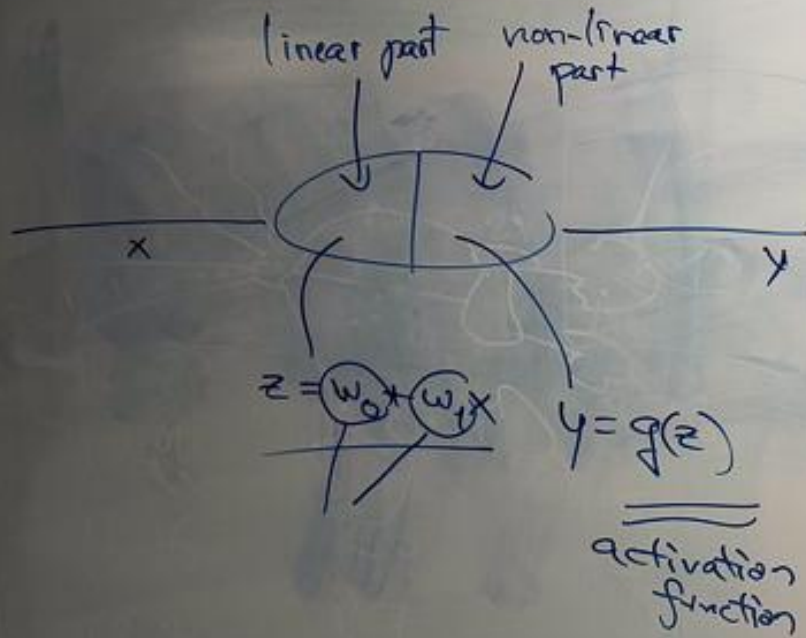 linear part
non-linear
part
x
y
z = w₀ + w₁x
y = g(z)
activation
function